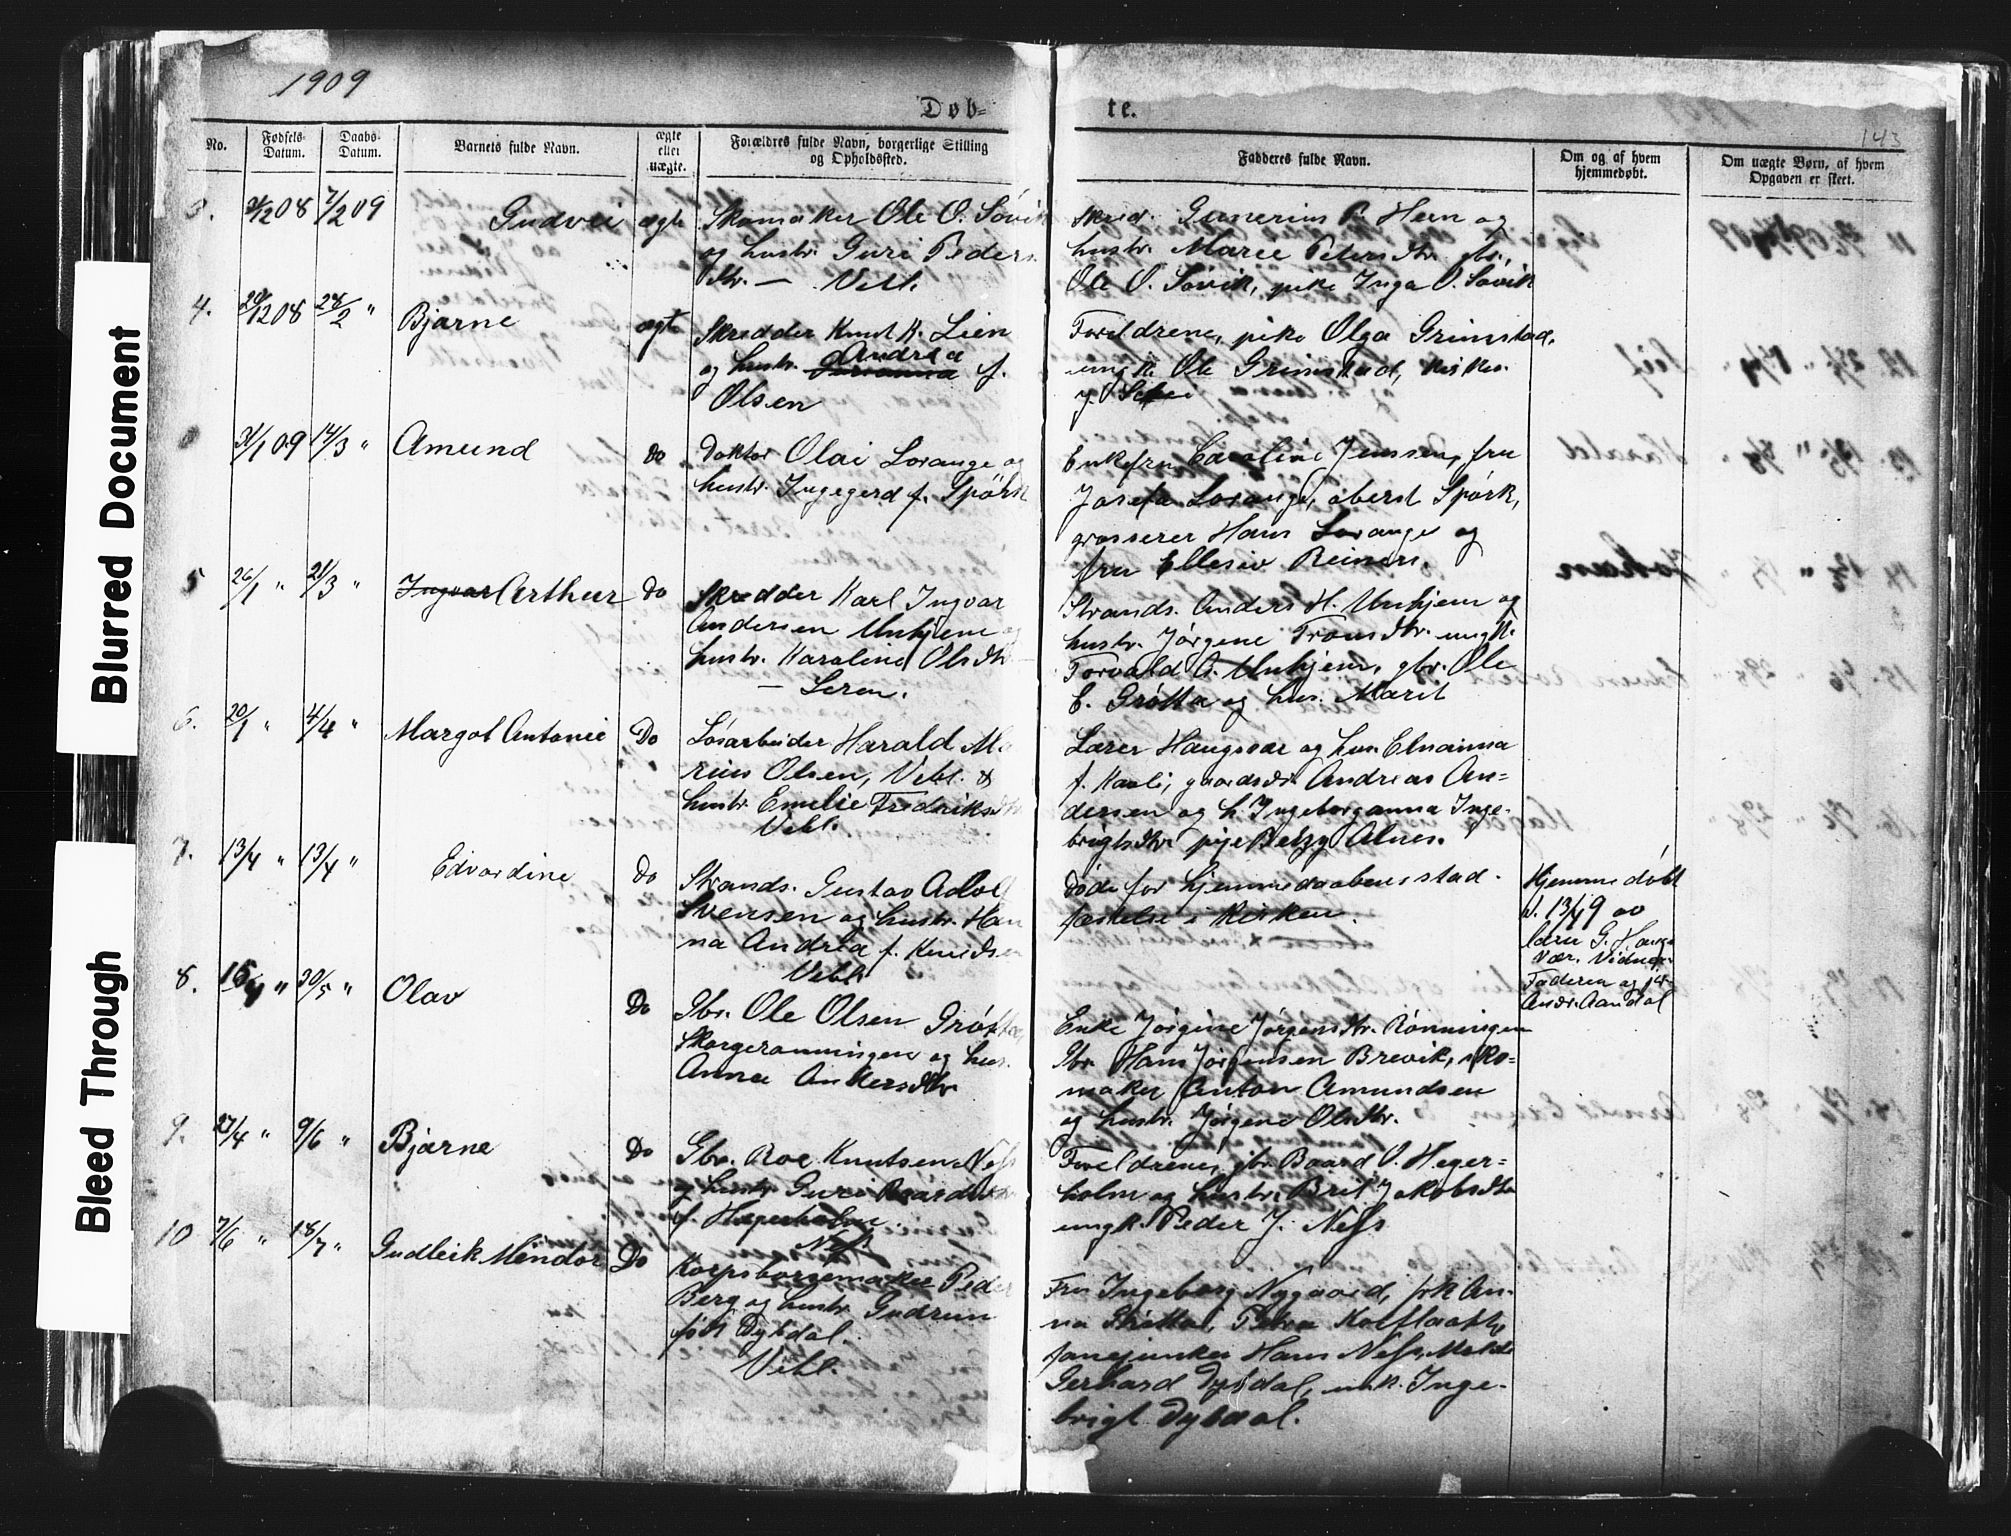 1909
143
Døb-
te.
No.
Fødsels-
Datum.
Daabs-
Datum.
Barnets fulde Navn.
ægte
eller
uægte.
Forældres fulde Navn, borgerlige Stilling
og Opholdssted.
Fadderes fulde Navn.
Om og af hvem
hjemmedøbt.
Om uægte Børn, af hvem
Opgaven er skeet.
3. 08 7/2 09 Gudvei ægte
Skomaker Ole O. Søvik
og hustr. Guri Peders
dtr. — Vebl.
Skrid. Gunerius P. Heen og
hustr. Maree Peters dtr. gbr.
Ole O. Søvik, pike Inga O. Søvik
4. 29/12 08 28/2 " Bjarne ægte
Skredder Knut K. Lien
og hustr. Andrea f.
Olsen
Foreldrene, pike Olga Grimstad,
ungk. Ole Grimstad, kirkes.
J. Schei
31/1 09 14/3 " Amund do
Doktor Olai Lorange og
hustr. Ingegerd f. Spørk
Enkefru Caroline Jenssen, fru
Josefa Lorange, oberst Spørk,
grosserer Hans Lorange og
fru Ellesiv Reiners.
5 26/1 " 21/3 " Ingvar Arthur do
Skredder Karl Ingvar
Andersen Unhjem og
hustr. Karoline Olsdtr
— Leren.
Strands. Anders H. Unhjem og
hustr. Jørgine Tronsdtr. ungk.
Torvald A. Unhjem, gbr. Ole
E. Grøtta og hus. Marit
6. 20/1 " 4/4 " Margot Antonie Do
Løsarbeider Harald Ma
rius Olsen, Vebl. &
hustr. Emelie Fredriksdtr
Vebl.
Lærer Haugsvær og hus. Elnanna
f. Kavli, gaardsbr. Andreas An=
dersen og h. Ingeborganna Inge-
brigtsdtr. pige Betzy Alnes.
7. 13/4 " 13/4 " Edvardine do
Strands. Gustav Adol
Svensen og hustr. Han
na Andrea f. Knudsen
Vebl.
Døde før hjemmedaabens stad-
fæstelse i kirken.
Hjemmedøbt
d. 13/4 9 av
lærer G. Haugs-
vær. Vidner:
Faderen og
Andr. Aandal
8. 15/4 " 30/5 " Olav Do
Gbr. Ole Olsen Grøtta,
Skorgerønningen og hus.
Anne Andersdtr.
Enke Jørgine Jørgensdtr. Rønningen
Gbr. Hans Jørgensen Brevik, sko=
maker Anton Amundsen
og hustr. Jørgine Olsdtr.
9. 27/4 " 9/6 " Bjarne Do
Gbr. Roe Knutsen Ness
og hustr. Guri Baardsdtr
f. Hegerholm.
Ness
Foreldrene, gbr. Baard O. Heger=
holm og hustr. Brit Jakobsdtr
ungk. Peder J. Ness
10 7/6 " 18/7 " Gudleik Mindor Do
Korpsbørsemaker Peder
Berg og hustr. Gudrun
født Dybdal.
Vebl.
Fru Ingeborg Nygaard, frk An-
na Grøtta, Petra Kolflaath,
fanejunker Hans Ness,
Gerhard Dybdal, ungk. Inge-
brigt Dybdal.
Blurred Document
Bleed Through